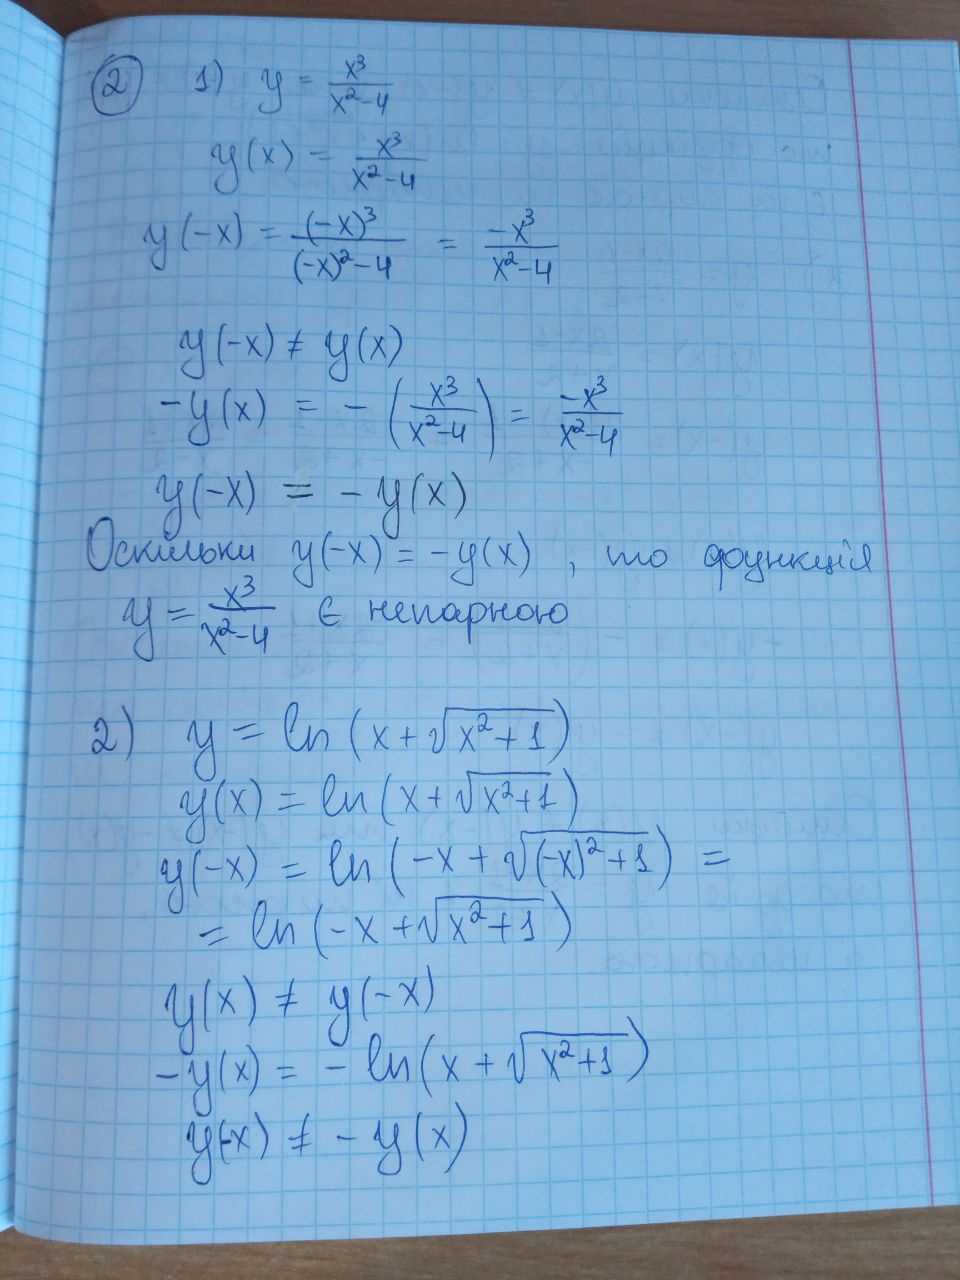 2 1) y = x³/(x²-4)
y(x) = x³/(x²-4)
y(-x) = (-x)³/((-x)²-4) = -x³/(x²-4)
y(-x) ≠ y(x)
-y(x) = -(x³/(x²-4)) = -x³/(x²-4)
y(-x) = -y(x)
Оскільки y(-x) = -y(x), то функція
y = x³/(x²-4) є непарною
2) y = ln(x+√(x²+1))
y(x) = ln(x+√(x²+1))
y(-x) = ln(-x+√((-x)²+1)) =
= ln(-x+√(x²+1))
y(x) ≠ y(-x)
-y(x) = -ln(x+√(x²+1))
y(-x) ≠ -y(x)